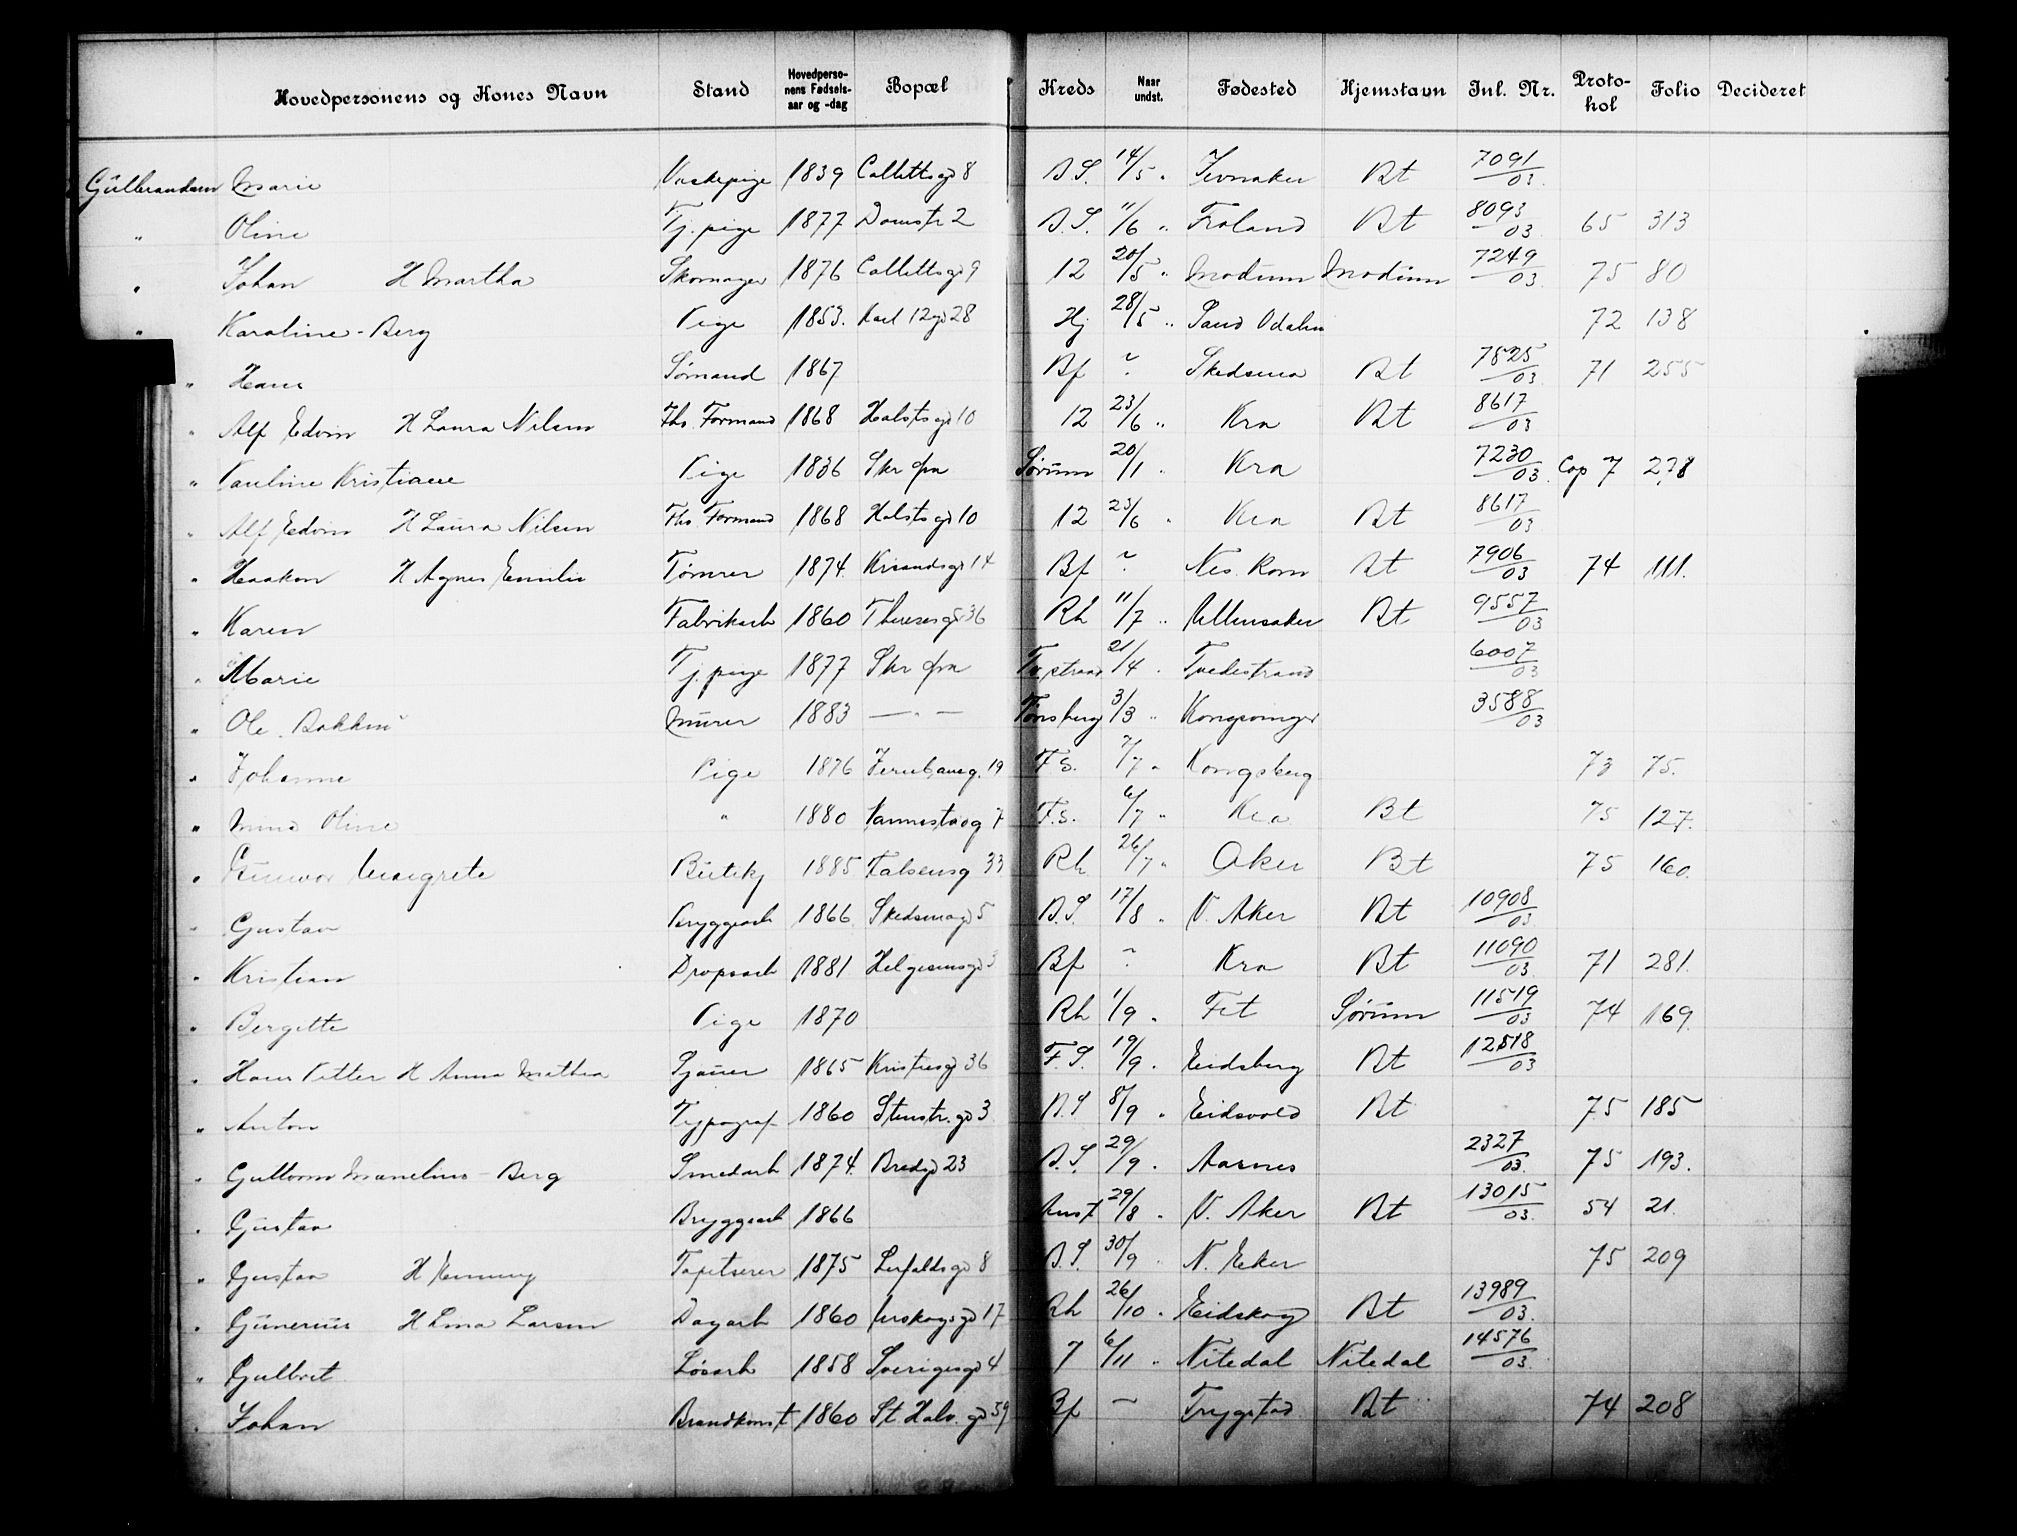 Hovedpersonens og Kones Navn Stand Hovedpersonens Fødselsaar og -dag Bopæl Kreds Naar undst. Fødested Hjemstavn Inl. Nr. Protokol Folio Decideret
Gulbrandsen Marie Vaskepige 1839 Collettsgd 8 B.S. 14/5 " Jevnaker Bt 7091/03
" Oline Tj. pige 1877 Domstr 2 B.S. 11/6 " Froland Bt 8093/03 65 313
" Johan H Martha Skomager 1876 Collettsgd 9 12 20/5 " Modum Modum 7249/03 75 80
" Karoline - Berg Pige 1853. Karl 12 gd 28 Hj 28/5 " Sand Odalen 72 138
" Hans Sømand 1867 Bf " Skedsmo Bt 7825/03 71 255
" Alf Edvin H Laura Nilsen Fhs. Formand 1868 Holstsgd 10 12 23/6 " Kra Bt 8617/03
" Pauline Kristiane Pige 1836 Skr fra Sørum 20/1 " Kra 7230/03 Cop 7 278
" Alf Edvin H Laura Nilsen Fhs Formand 1868 Holstsgd 10 12 23/6 " Kra Bt 8617/03
" Haakon H Agnes Emilie Tømrer 1874. Krsandsgd 14 Bf " Nes. Rom Bt 7906/03 74 111.
" Karen Fabrikarb 1860 Theresesgd 36 Rh 11/7 " Ullensaker Bt 9557/03
" Marie Tj. pige 1877 Skr fra Tv.strand 21/4 " Tvedestrand 6007/03
" Ole Bakken Murer 1883 — " — Tønsberg 3/3 " Kongsvinger 3588/03
" Johanne Pige 1876 Jernbaneg. 19 F.S. 7/7 " Kongsberg 73 75.
" Oline " 1880 7 F.S. 6/7 " Kra Bt 75 127.
" Gunvor Margrete Butikj 1885 Falsensg 33 Rh 26/7 " Aker Bt 75 160.
" Gustav Bryggearb 1866 Skedsmogd 5 B.S. 17/8 " V. Aker Bt 10908/03
" Kristian Dropsarb 1881 Helgesensgd 3 Bf " Kra Bt 11090/03 71 281.
" Bergitte Pige 1870 Rh 1/9 " Fet Sørum 11519/03 74 169.
" Hans Petter H Anna Mathea Sjauer 1865 Kristiesgd 36 F.S. 19/9 " Eidsberg Bt 12518/03
" Anton Typograf 1860 Stenstr. gd 3 B.S 8/9 " Eidsvold Bt 75 185
" Guttorm Manelius - Berg Smedarb 1874. Bredgd 23 B.S. 29/9 " Aasnes 2327/03. 75 193.
" Gustav Bryggearb 1866 Anst 29/8 " V. Aker Bt 13015/03. 54 21.
" Gustav H Henny Tapetserer 1875 Lerfaldsgd 8 B.S. 30/9 " N. Eker 75 209
" Gunerius H Lina Larsen Dagarb 1860 Urskogsgd 17 Rh 26/10 " Eidskog Bt 13989/03.
" Gulbret Løsarb 1858 Sverigesgd 4 7 6/11 " Nitedal Nitedal 14576/03.
" Johan Brandkonst 1860 St Halv. gd 59 Bf — Trygstad Bt 74 208